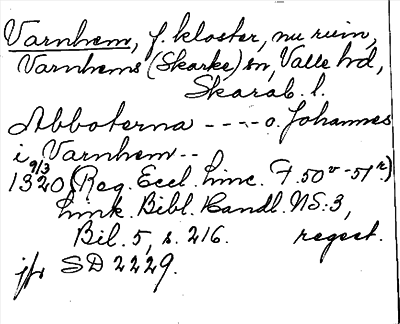 Varnhem, f. kloster, nu ruin,
Varnhems (Skarke) sn, Valle hd,
Skarab. l.
Abboterna ---- o. Johannes
i Varnhem --
9/3
1320 (Reg. Eccl. Linc. F. 50v-51r)
Link. Bibl. Handl. NS:3,
Bil. 5, s. 216. regest.
jfr SD 2229.